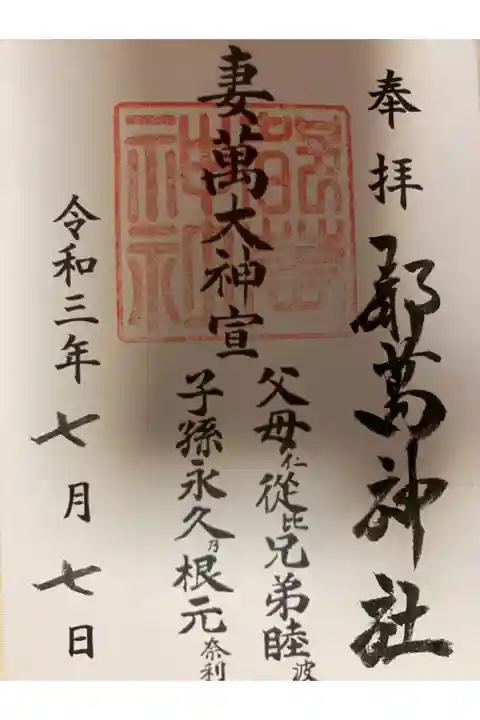 奉拝
都萬神社
妻萬大神宣
父母仁従比兄弟睦波
子孫永久乃根元奈利
令和三年七月七日